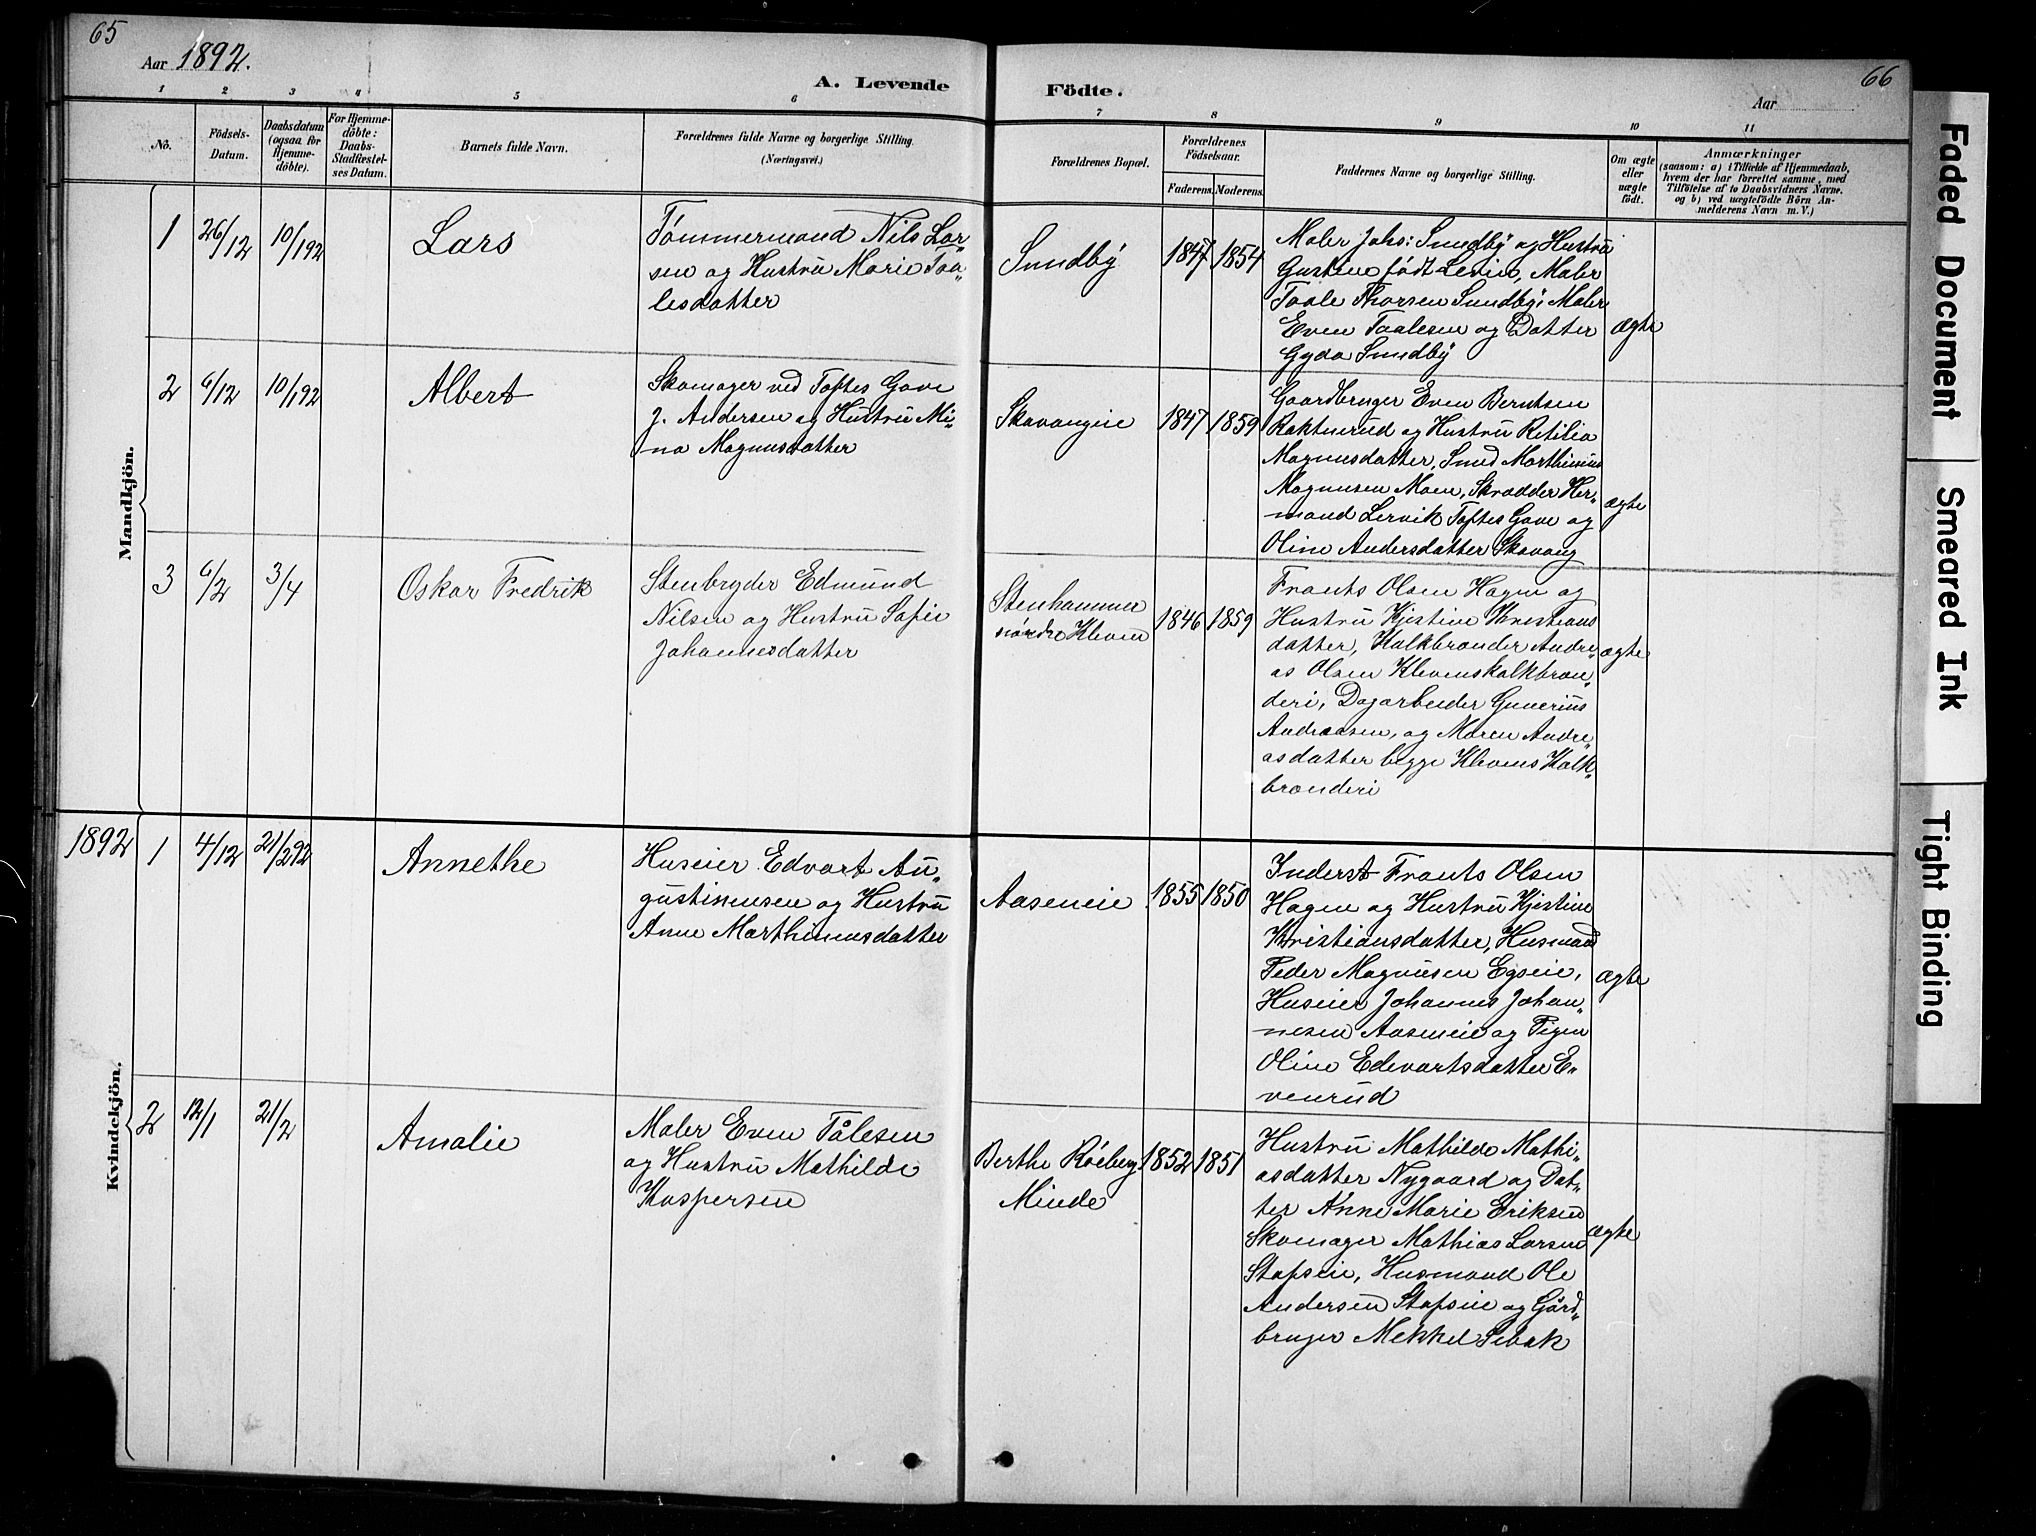 65
66
Aar 1892.
A. Levende Födte.
Aar
1 2 3 4 5 6 7 8 9 10 11
No.
Födsels-
Datum.
Daabsdatum
(ogsaa for
Hjemme-
döbte).
For Hjemme-
döbte:
Daabs-
Stadfæstel-
ses Datum.
Barnets fulde Navn.
Forældrenes fulde Navne og borgerlige Stilling.
(Næringsvei.)
Forældrenes Bopæl.
Forældrenes
Födselsaar.
Faderens. Moderens.
Faddernes Navne og borgerlige Stilling.
Om ægte
eller
uægte
födt.
Anmærkninger
(saasom: a) i Tilfælde af Hjemmedaab,
hvem der har forrettet samme, med
Tilföielse af to Daabsvidners Navne.
og b) ved uægtefödte Börn An-
melderens Navn m. V.)
Mandkjön.
1
26/12
10/192
Lars
Tømmermand Nils Lar-
sen og Hustru Marie Taa-
lesdatter
Sundby
1847
1854
Maler Johs: Sundby og Hustru
Gustine født Levin, Maler
Taale Thorsen Sundby, Maler
Even Taalesen og Datter
Gyda Sundby
ægte
2
6/12
10/192
Albert
Skomager ved Toftes Gave
J. Andersen og Hustru Mi-
na Magnusdatter
Skavangeie
1847
1859
Gaardbruger Even Berntsen
Raknerud og Hustru Retilia
Magnusdatter, Smed Marthinius
Magnusen Moen, Skrædder Her-
mand Lervik Toftes Gave og
Oline Andersdatter Skavang
ægte
3
6/2
3/4
Oskar Fredrik
Stenbryder Edmund
Nilsen og Hustru Sofie
Johannesdatter
Stenhammer
nordre Kleven
1846
1859
Frants Olsen Hagen og
Hustru Kjestine Kristians
datter, Kalkbrænder Andre-
as Olsen Klevenskalkbræn-
deri, Dagarbeider Gunerius
Andreasen, og Maren Andre-
asdatter begge Klevens Kalk-
brænderi
ægte
Kvindekjön.
1892
1
4/12
21/292
Annethe
Huseier Edvart Au-
gustinussen og Hustru
Anne Marthinusdatter
Aaseneie
1855
1850
Inderst Frants Olsen
Hagen og Hustru Kjestine
Kristiansdatter, Husmand
Peder Magnusen Egseie,
Huseier Johannes Johan-
nesen Aaseneie og Pigen
Oline Edevartsdatter E-
venrud
ægte
2
12/1
21/2
Amalie
Maler Even Tålesen
og Hustru Mathilde
Kaspersen
Berthe Røeberg
Minde
1852
1851
Hustru Mathilde Mathi-
asdatter Nygaard og Dat-
ter Anne Marie Eriksen
Skomager Mathias Larsen
Stafseie, Husmand Ole
Andersen Stafseie og Gård-
bruger Mekkel Sevak
ægte
Faded Document
Smeared Ink
Tight Binding